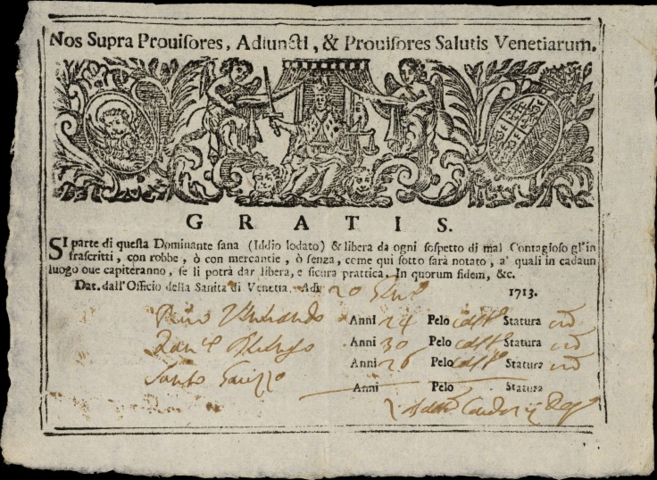 Nos Supra Prouisores, Adiuncti, & Prouisores Salutis Venetiarum.
GRATIS.
SI parte di questa Dominante sana (Iddio lodato) & libera da ogni sospetto di mal Contagioso gl'in
frascritti, con robbe, ò con mercantie, ò senza, come qui sotto sarà notato, a' quali in cadaun
luogo oue capiteranno, se li potrà dar libera, e sicura prattica. In quorum fidem, &c.
Dat. dall'Officio della Sanità di Venetia. Adì 20 1713.
Anni 24 Pelo Statura
Anni 30 Pelo Statura
Santo Anni 26 Pelo Statura
Anni Pelo Statura